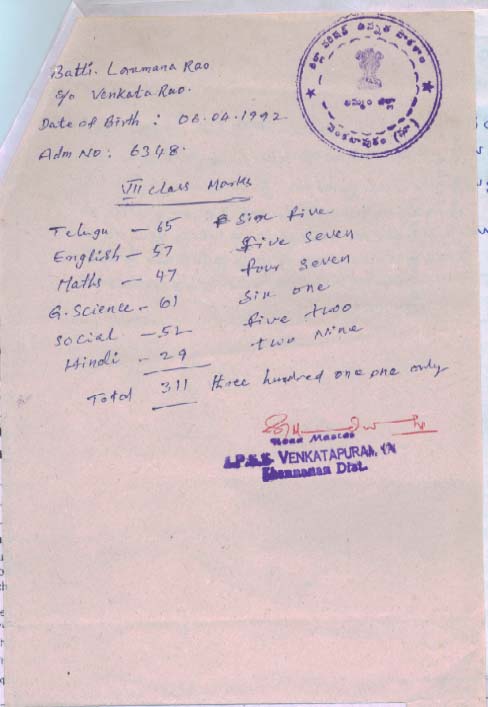 జిల్లా పరిషత్ ఉన్నత పాఠశాల
ఖమ్మం జిల్లా
వెంకటాపురం
Batti. Loramana Rao
S/o Venkata Rao.
Date of Birth : 06.04.1992
Adm No: 6348.
VII class Marks
Telugu - 65 Six five
English - 57 Five Seven
Maths - 47 four Seven
G. Science - 61 Six one
Social - 52 five two
Hindi - 29 two Nine
Total 311 three hundred one one only
Head Master
VENKATAPURAM,
Khammam Dist.